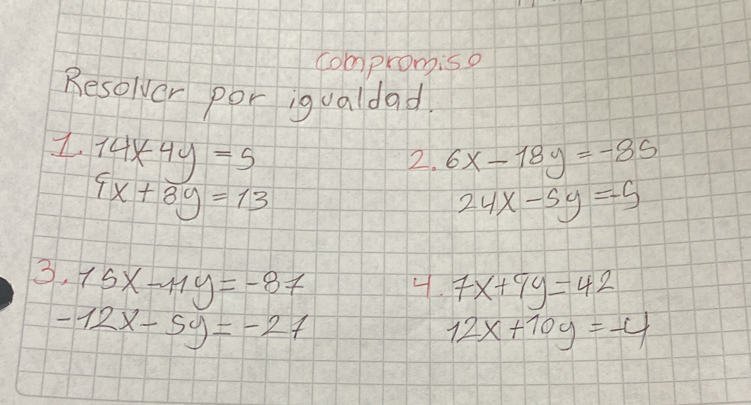 compromiso
Resolver por igualdad.
1. 14x-4y=5
9x+8y=13
2. 6x-18y=-85
24x-5y=-5
3. 15x-11y=-87
-12x-5y=-27
4. 7x+9y=42
12x+10y=-4